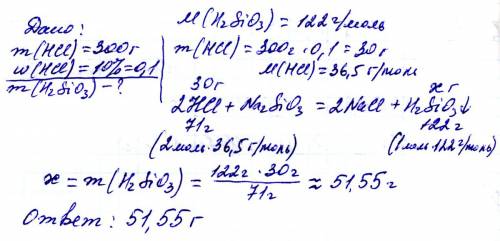 Дано:
m(HCl) = 300г
w(HCl) = 10% = 0,1
m(H₂SiO₃) - ?
M(H₂SiO₃) = 122 г/моль
m(HCl) = 300г · 0,1 = 30г
M(HCl) = 36,5 г/моль
30г х г
2HCl + Na₂SiO₃ = 2NaCl + H₂SiO₃↓
71г 122г
(2моль·36,5г/моль) (1моль·122г/моль)
х = m(H₂SiO₃) = 122г · 30г / 71г ≈ 51,55г
Ответ: 51,55г